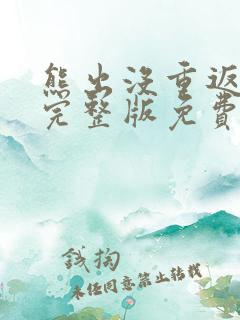 熊出没重返
完整版免费
钱掏
未经同意禁止转载